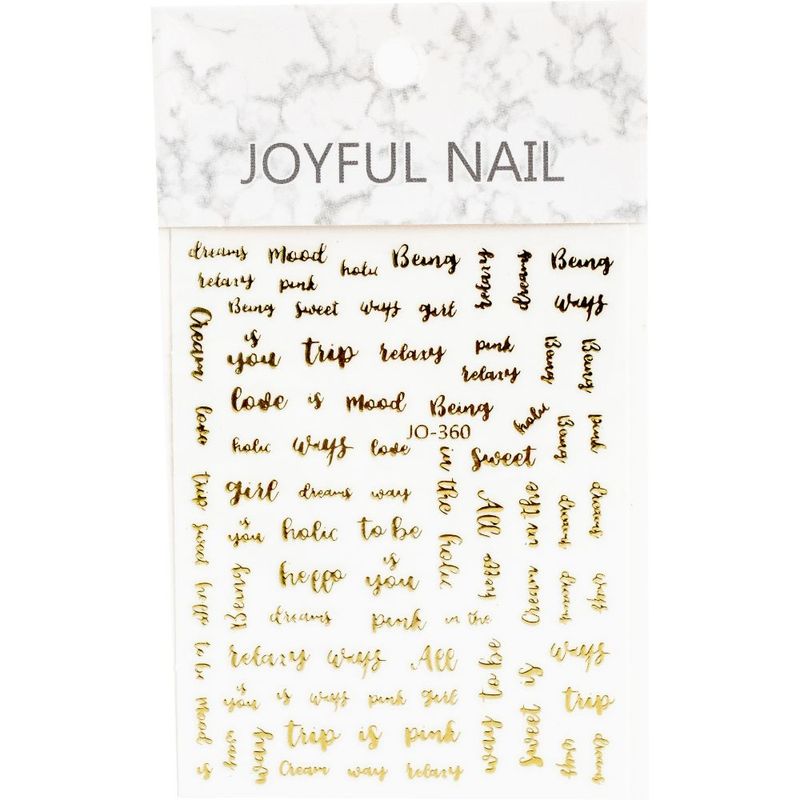 JOYFUL NAIL
dreams Mood holic Being relaxy dreams Being
relaxy pink
Being sweet ways girl ways
Cream is you trip relaxy pink Being Being
relaxy
love is Mood Being holic
JO-360
love holic ways love in the sweet Being pink
trip girl dreams way All in the dreams dreams
sweet is you holic to be holic
heffo Being heffo is you heffo Cream
dreams pink in the
to be relaxy ways All way to be sweet is ways
Mood is you is ways pink girl trip
is way trip is pink
Cream way relaxy